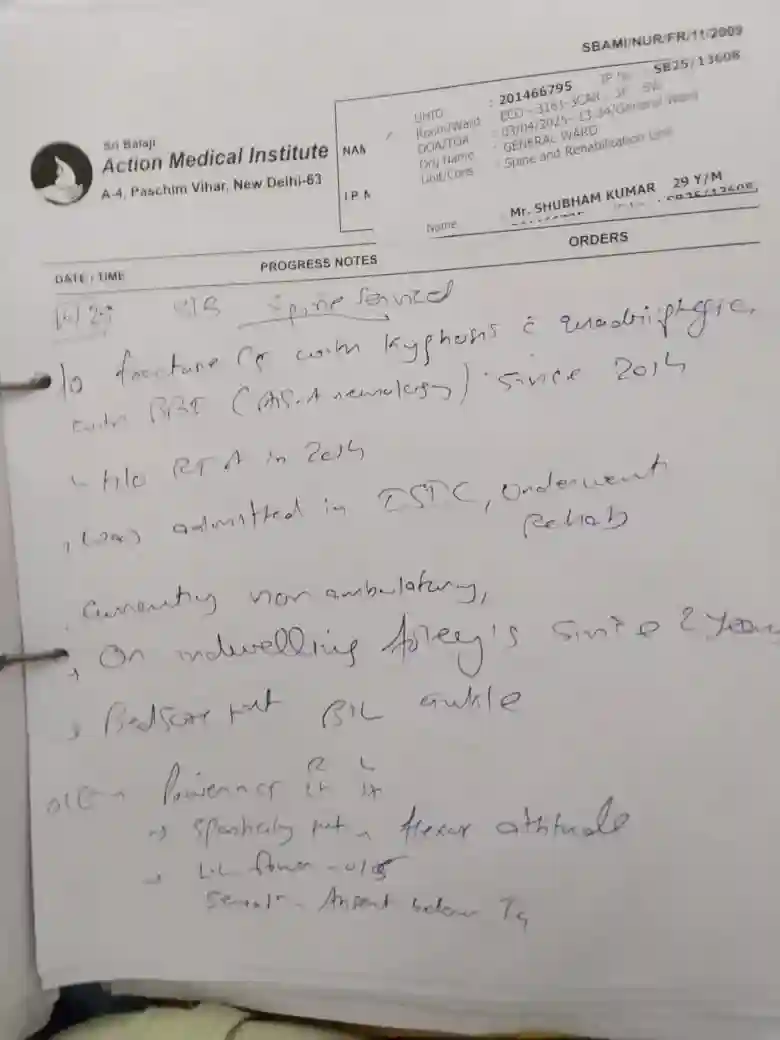 SBAMI/NUR/FR/11/2009
Sri Balaji
Action Medical Institute
A-4, Paschim Vihar, New Delhi-63
NAM
I P N
UHID : 201466795 IP No SB25/13608
Room/Ward
DOA/TOA : 03/04/2025- 13:34/General Ward
Dry Name : GENERAL WARD
Unit/Cons : Spine and Rehabilitation Unit
Name Mr. SHUBHAM KUMAR 29 Y/M
DATE / TIME PROGRESS NOTES ORDERS
S/B Spine Service
fracture with Kyphosis c̄ quadriplegic
with BBI (neurology) since 2014
H/o RTA in 2014
was admitted in ISIC, Underwent
Rehab
Currently non ambulatory,
→ On indwelling foley's since 2 years
→ Bedsore B/L ankle
O/E Power R L
→ Spasticity flexor attitude
→ LL Power - 0/5
Absent below T4